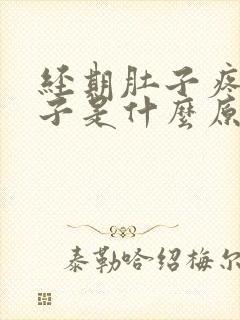 經期肚子疼
子是什麼原
泰勒哈紹梅尔